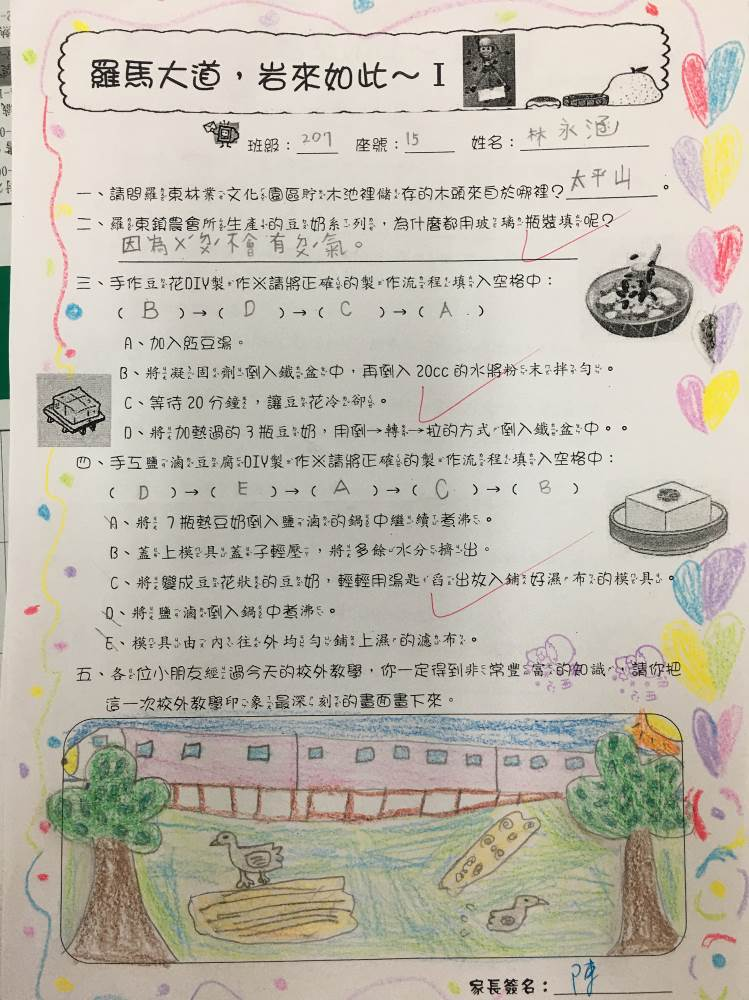 羅馬大道，岩來如此～I
班級：207 座號：15 姓名：林永涵
一、請問羅東林業文化園區貯木池裡儲存的木頭來自於哪裡？太平山。
二、羅東鎮農會所生產的豆奶系列，為什麼都用玻璃瓶裝填呢？
因為ㄨˊㄉㄨˊ不會有ㄉㄨˊ氣。
三、手作豆花DIY製作※請將正確的製作流程填入空格中：
（B）→（D）→（C）→（A）
A、加入紅豆湯。
B、將凝固劑倒入鐵盆中，再倒入20cc的水將粉末拌勻。
C、等待20分鐘，讓豆花冷卻。
D、將加熱過的3瓶豆奶，用倒→轉→拉的方式倒入鐵盆中。。
四、手工鹽滷豆腐DIY製作※請將正確的製作流程填入空格中：
（D）→（E）→（A）→（C）→（B）
A、將7瓶熱豆奶倒入鹽滷的鍋中繼續煮沸。
B、蓋上模具蓋子輕壓，將多餘水分擠出。
C、將變成豆花狀的豆奶，輕輕用湯匙舀出放入鋪好濕布的模具。
D、將鹽滷倒入鍋中煮沸。
E、模具由內往外均勻鋪上濕的濾布。
五、各位小朋友經過今天的校外教學，你一定得到非常豐富的知識，請你把
這一次校外教學印象最深刻的畫面畫下來。
家長簽名：陳